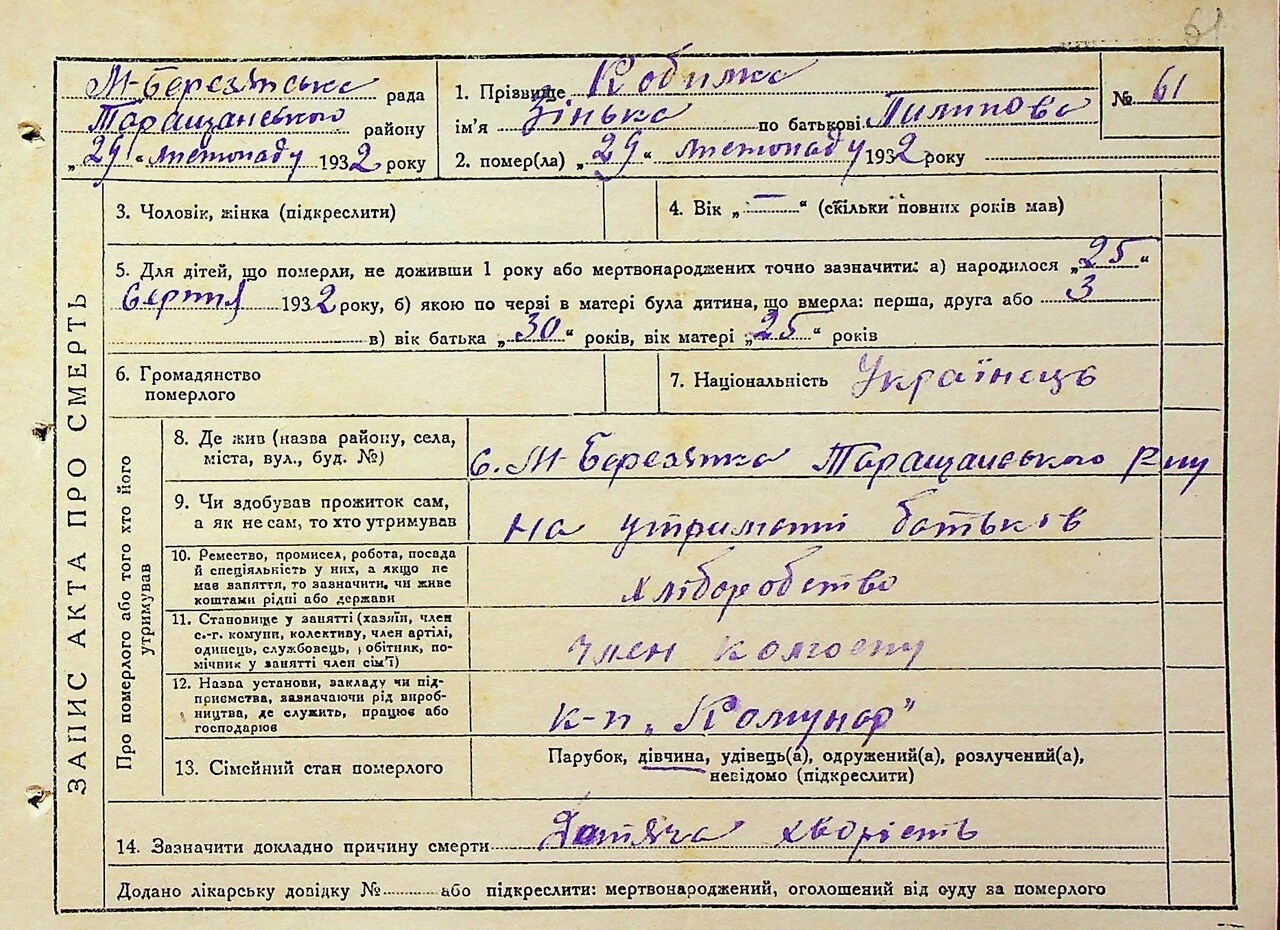 61
М-Березянська рада
Таращанського району
„29“ листопаду 1932 року
1. Прізвище Кобилка
ім'я Зінька по батькові Пилипова
2. помер(ла) „29“ листопаду 1932 року
№ 61
ЗАПИС АКТА ПРО СМЕРТЬ
3. Чоловік, жінка (підкреслити)
4. Вік „—“ (скільки повних років мав)
5. Для дітей, що померли, не доживши 1 року або мертвонароджених точно зазначити: а) народилося „25“
серпня 1932 року, б) якою по черзі в матері була дитина, що вмерла: перша, друга або 3
в) вік батька „30“ років, вік матері „25“ років
6. Громадянство
померлого
7. Національність Українець
Про померлого або того хто його
утримував
8. Де жив (назва району, села,
міста, вул., буд. №)
с. М-Березянка Таращанського Р-ну
9. Чи здобував прожиток сам,
а як не сам, то хто утримував
на утриманні батьків
10. Ремество, промисел, робота, посада
й спеціяльність у них, а якщо не
має заняття, то зазначити, чи живе
коштами рідні або держави
Хліборобство
11. Становище у занятті (хазяїн, член
с.-г. комуни, колективу, член артілі,
одинець, службовець, робітник, по-
мічник у занятті член сім'ї)
Член колгоспу
12. Назва установи, закладу чи під-
приємства, зазначаючи рід вироб-
ництва, де служить, працює або
господарює
к-п „Комунар"
13. Сімейний стан померлого
Парубок, дівчина, удівець(а), одружений(а), розлучений(а),
невідомо (підкреслити)
14. Зазначити докладно причину смерти Дотяча хворість
Додано лікарську довідку № або підкреслити: мертвонароджений, оголошений від суду за померлого